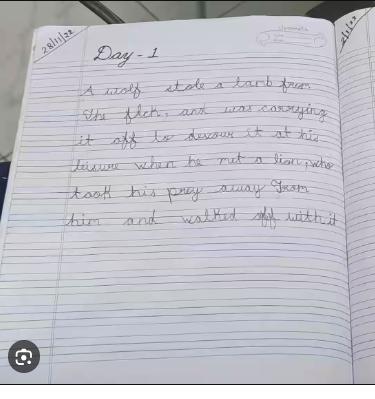 28/11/22
Day - 1
A wolf stole a lamb from
the flck, and was carrying
it off to devour it at his
leisure when he met a lion, who
took his prey away from
him and walked off with it